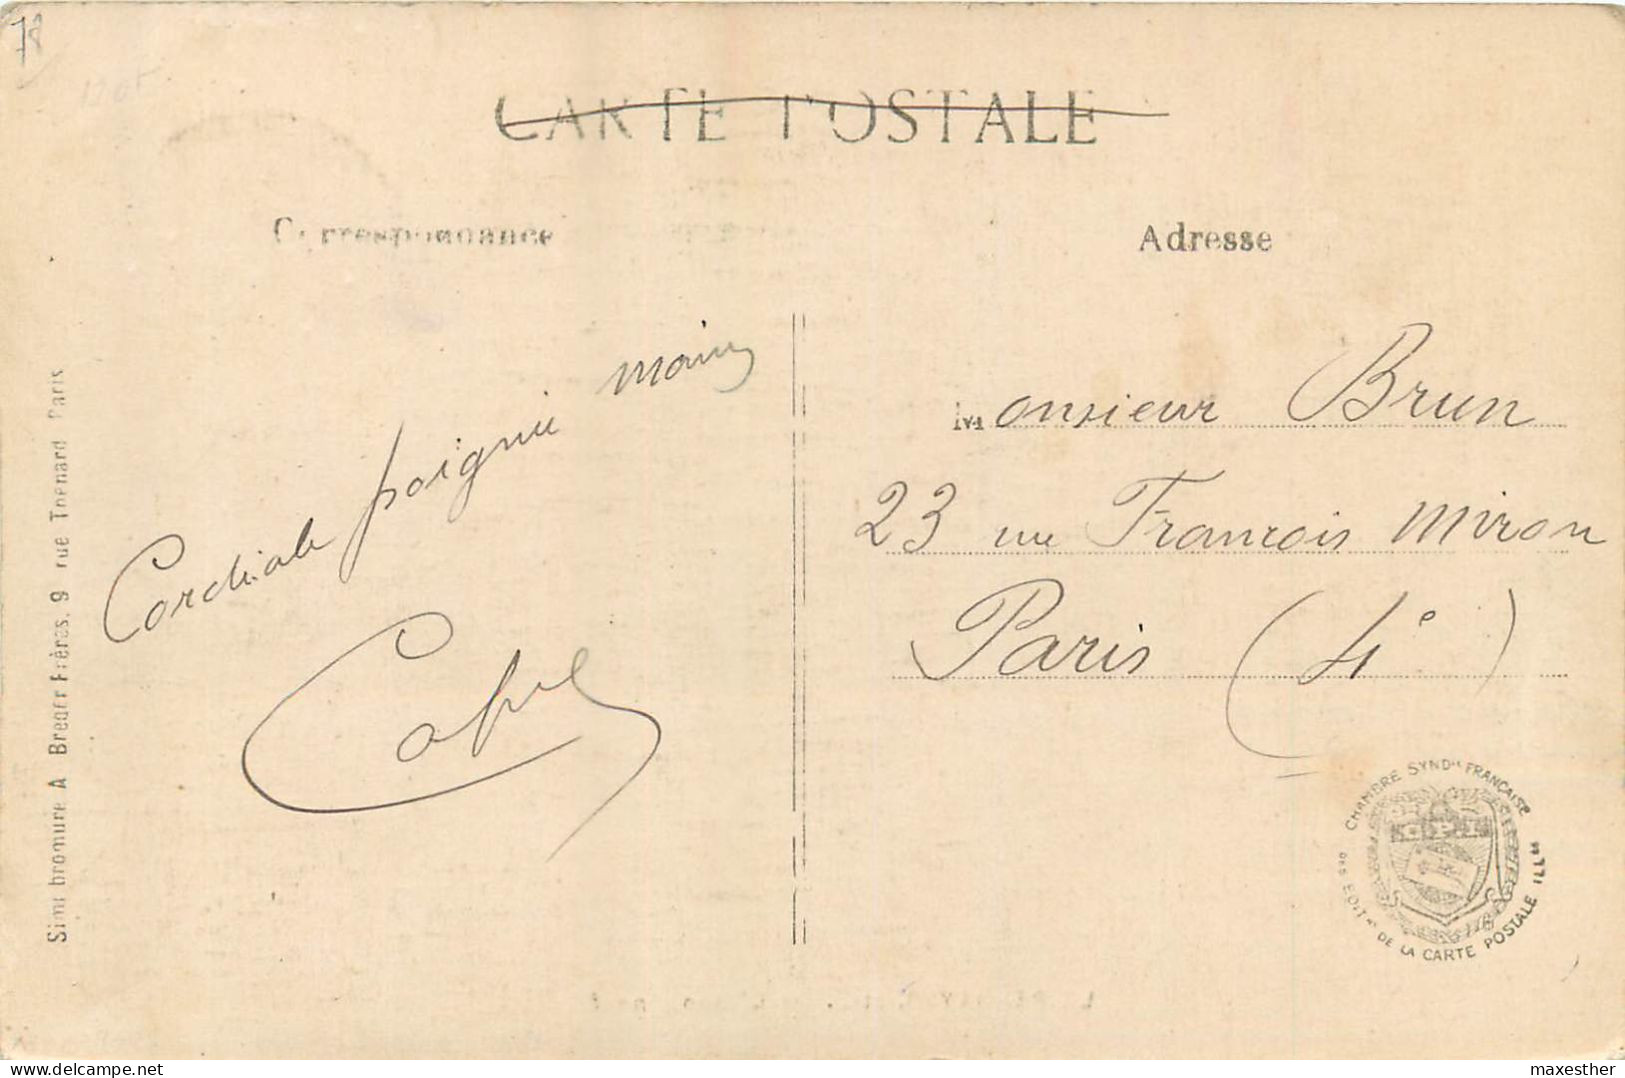 78
CARTE POSTALE
Correspondance
Adresse
Cordiale poignée main
Monsieur Brun
23 rue François Miron
Paris (4e)
Simi bromure A Breger Frères, 9 rue Thenard Paris
CHAMBRE SYND.le FRANÇAISE
DES EDIT.rs DE LA CARTE POSTALE ILL.ée
C.P.I.
delcampe.net
maxesther